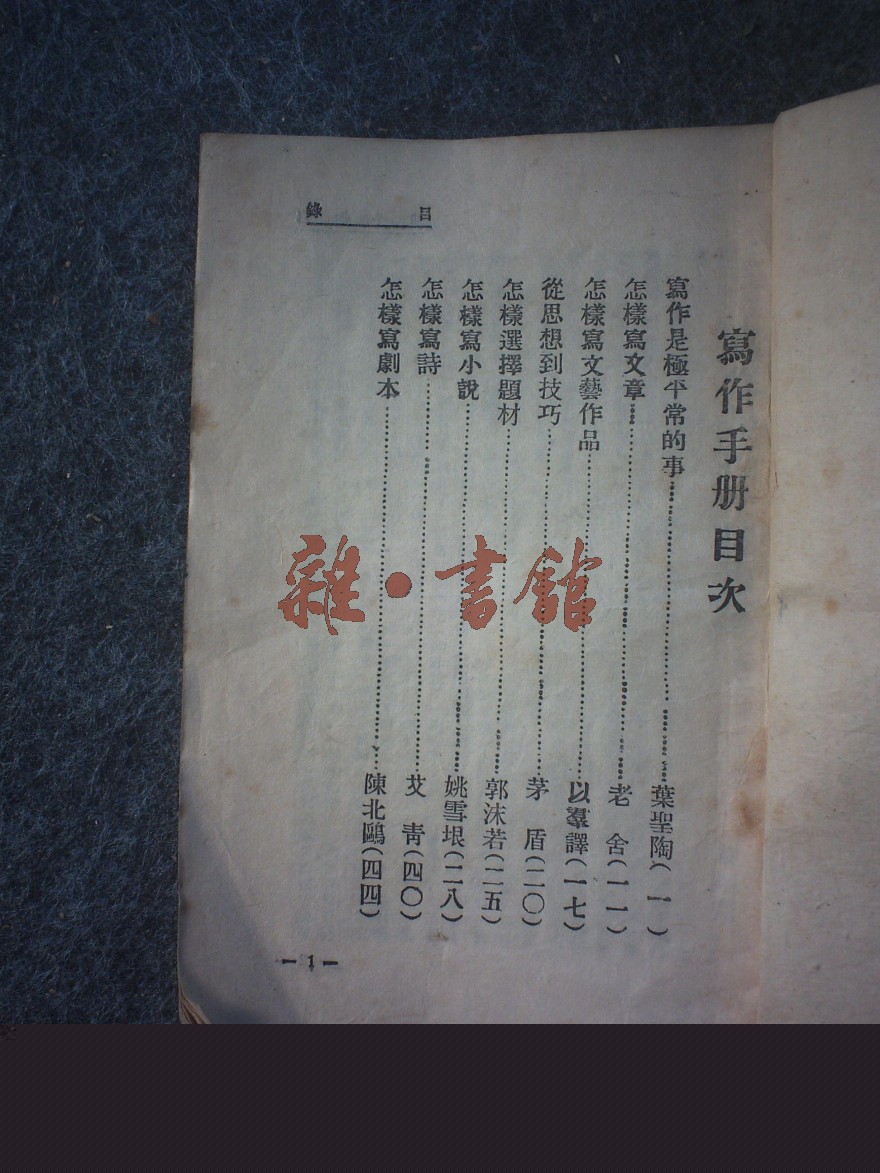 目錄
寫作手册目次
寫作是極平常的事⋯⋯葉聖陶(一)
怎樣寫文章⋯⋯老舍(一一)
怎樣寫文藝作品⋯⋯以羣譯(一七)
從思想到技巧⋯⋯茅盾(二〇)
怎樣選擇題材⋯⋯郭沫若(二五)
怎樣寫小說⋯⋯姚雪垠(二八)
怎樣寫詩⋯⋯艾青(四〇)
怎樣寫劇本⋯⋯陳北鷗(四四)
— 1 —
雜·書館